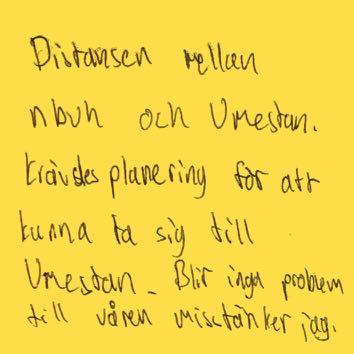 Distansen mellan
nbvh och Umestan.
krävdes planering för att
kunna ta sig till
Umestan. Blir inga problem
till våren misstänker jag.